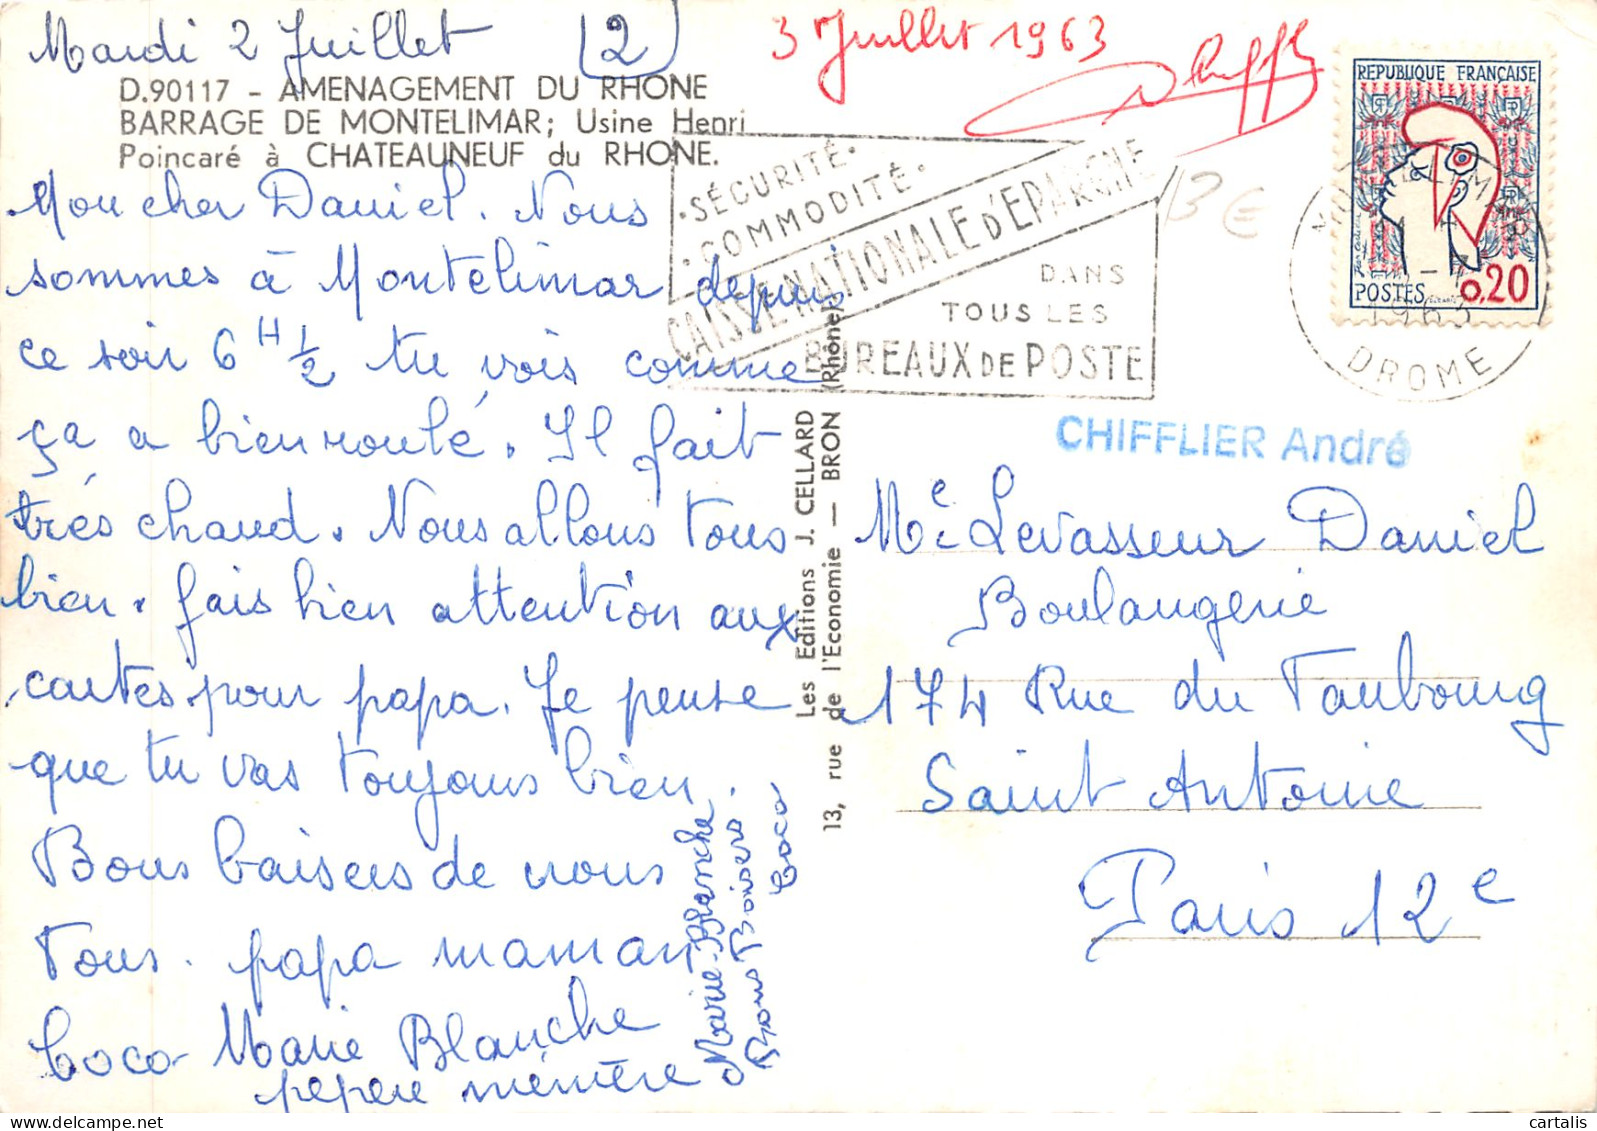 Mardi 2 Juillet (2)
3 Juillet 1963
D.90117 - AMENAGEMENT DU RHONE
BARRAGE DE MONTELIMAR; Usine Henri
Poincaré à CHATEAUNEUF du RHONE.
Mon cher Daniel. Nous
sommes à Montelimar depuis
ce soir 6 H ½ tu vois comme
ça a bien roulé. Il fait
très chaud. Nous allons tous
bien. fais bien attention aux
cartes pour papa. Je pense
que tu vas toujours bien.
Bons baisers de nous
tous. papa maman
Coco Marie Blanche
pepere mémère
Marie-Blanche
Bons Baisers
Coco
Les Editions J. CELLARD
13, rue de l'Economie — BRON (Rhône)
·SÉCURITÉ·
·COMMODITÉ·
CAISSE NATIONALE D'EPARGNE
DANS
TOUS LES
BUREAUX DE POSTE
3 €
REPUBLIQUE FRANÇAISE
POSTES 0,20
1963
DROME
CHIFFLIER André
Me Levasseur Daniel
Boulangerie
174 Rue du Faubourg
Saint Antoine
Paris 12e
cartalis